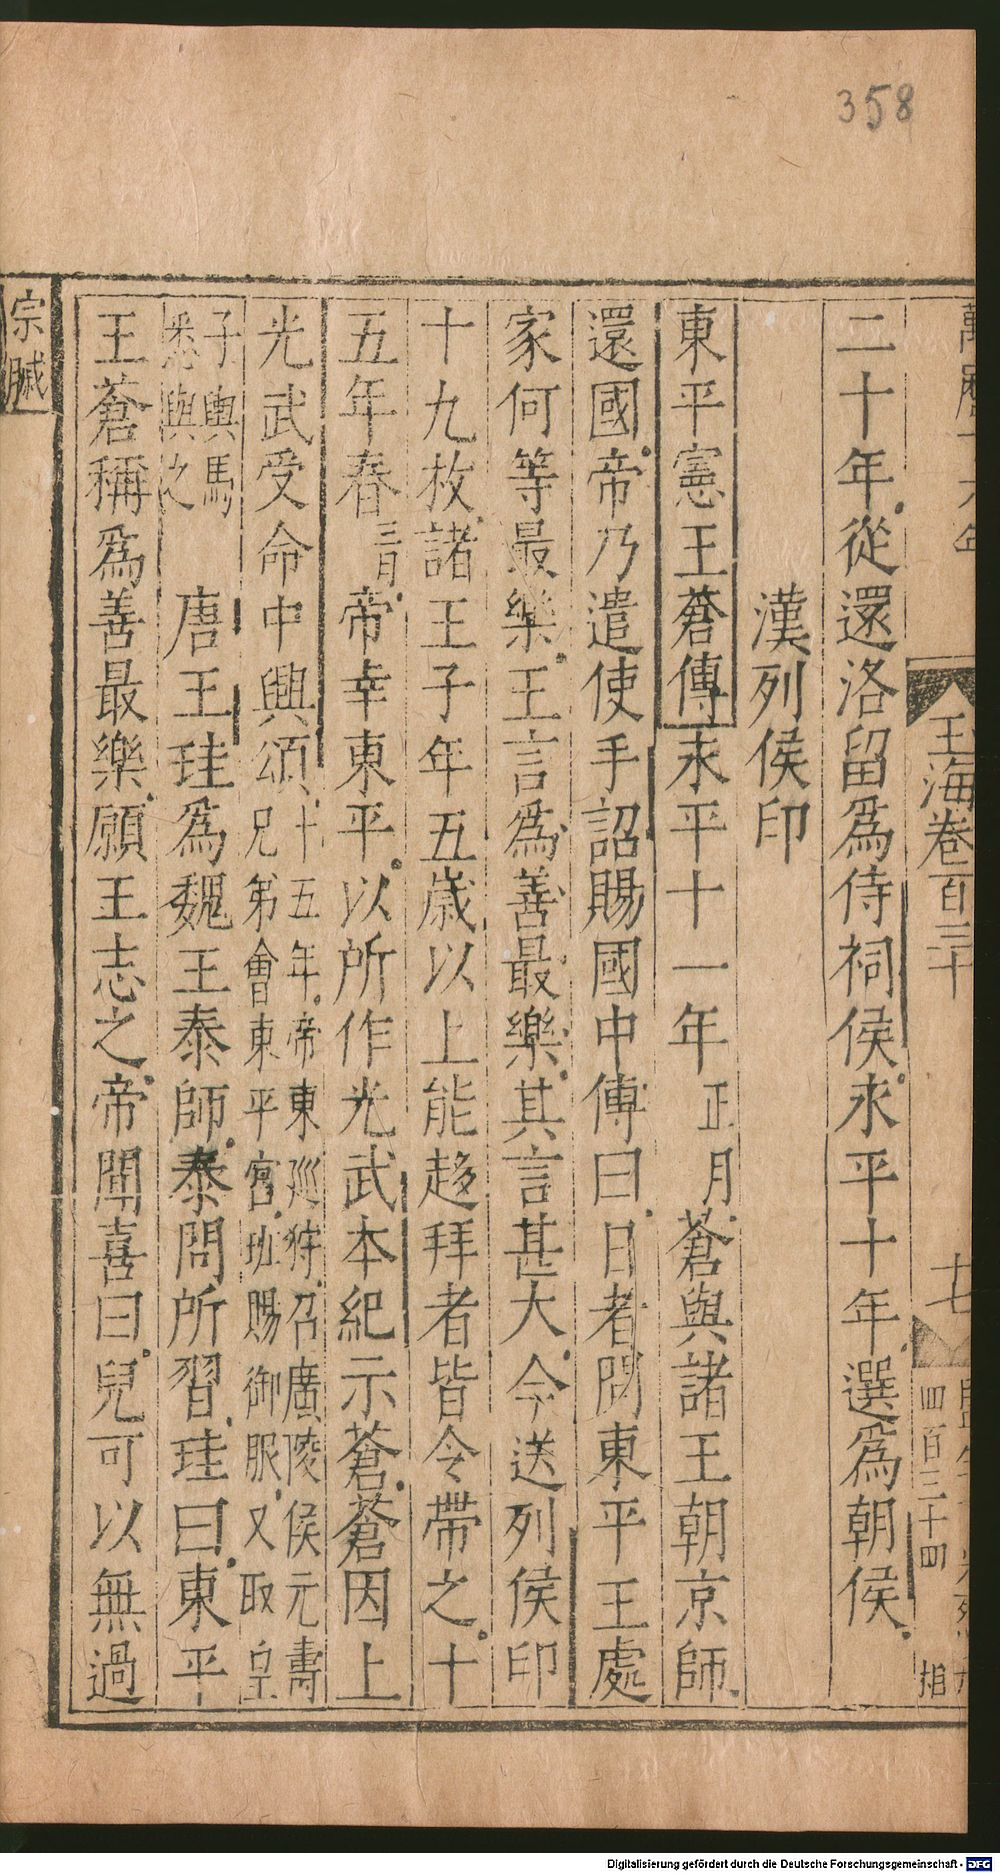 358
玉海卷百三十
十七
四百三十四
二十年從還洛留爲侍祠侯永平十年選爲朝侯
漢列侯印
東平憲王蒼傳永平十一年正月蒼與諸王朝京師
還國帝乃遣使手詔賜國中傅曰日者問東平王處
家何等最樂王言爲善最樂其言甚大今送列侯印
十九枚諸王子年五歲以上能趍拜者皆令帶之十
五年春三月帝幸東平以所作光武本紀示蒼蒼因上
光武受命中興頌十五年帝東巡狩召廣陵侯元壽
兄弟會東平宮班賜御服又取皇
子輿馬
悉與之
唐王珪爲魏王泰師泰問所習珪曰東平
王蒼稱爲善最樂願王志之帝聞喜曰兒可以無過
宗臧
Digitalisierung gefördert durch die Deutsche Forschungsgemeinschaft - DFG